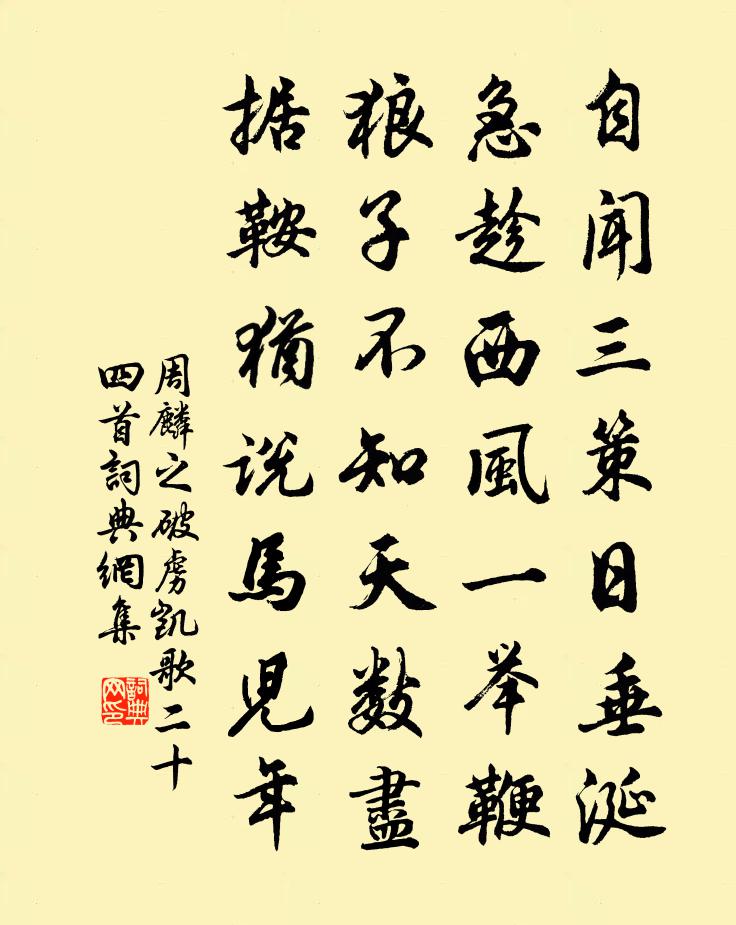 自聞三策日垂涎
急趁西風一举鞭
狼子不知天数盡
据鞍猶説馬児年
周麟之破虜凱歌二十
四首詞典網集
詞典网印